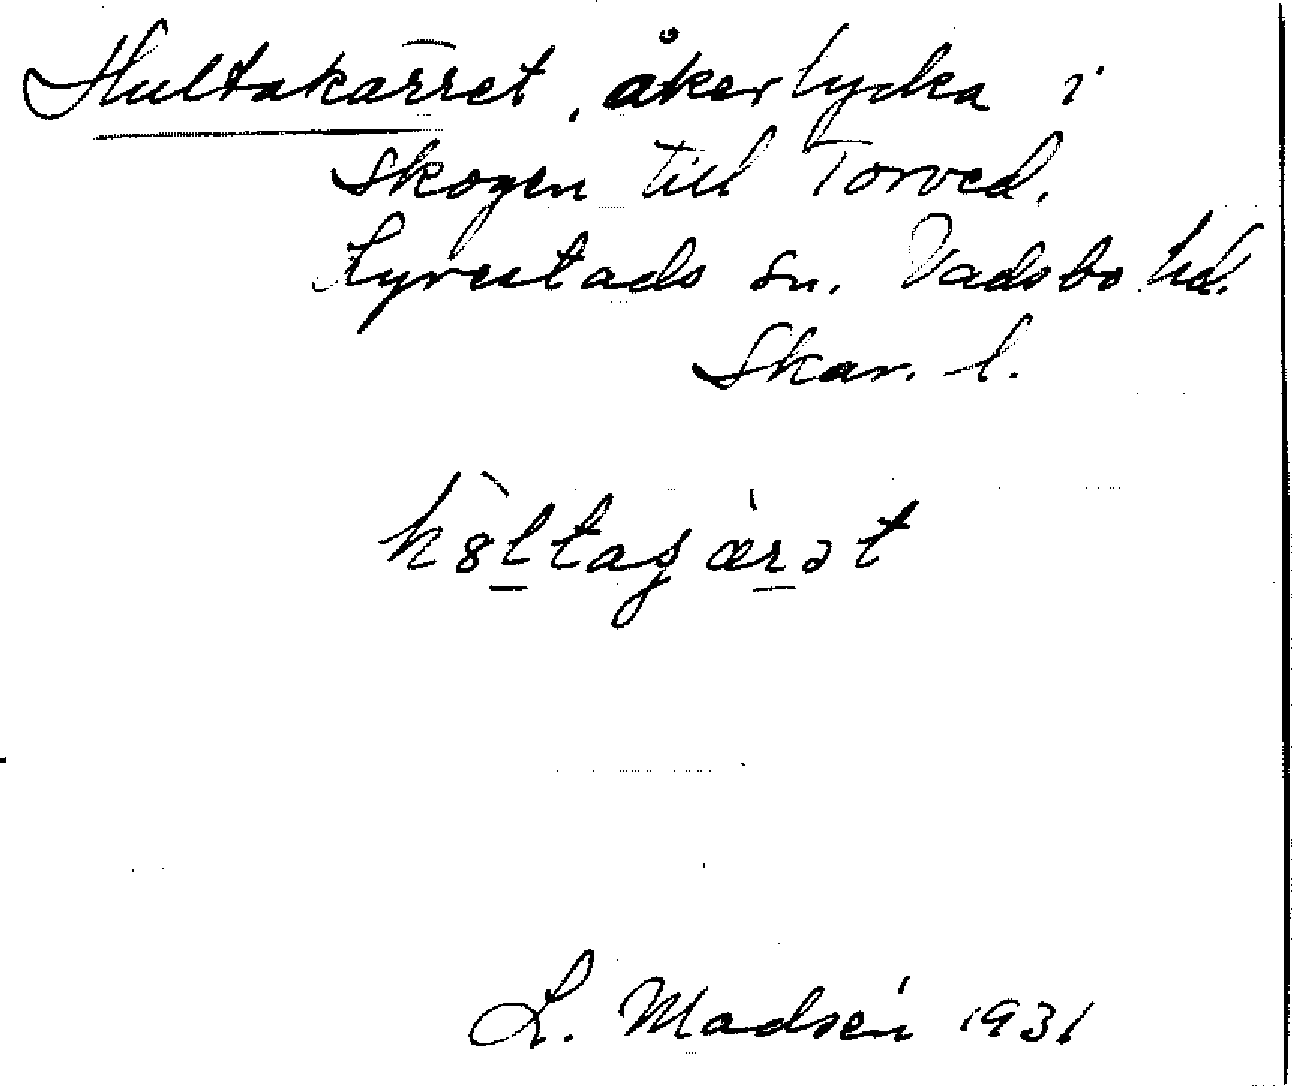 Hultakärret, åkerlycka i
skogen till Torved.
Lyrestads sn. Vadsbo hd.
Skar. l.
L. Madsén 1931